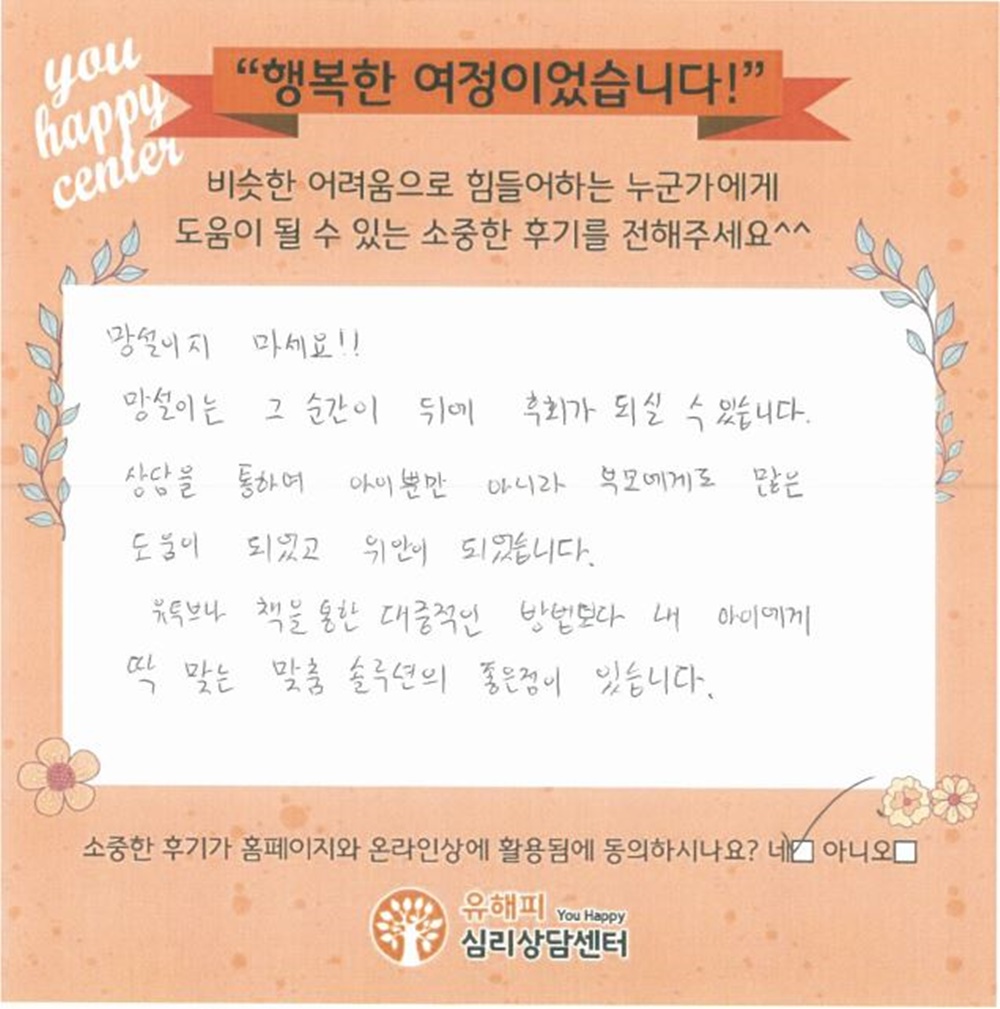 you
happy
center
“행복한 여정이었습니다!”
비슷한 어려움으로 힘들어하는 누군가에게
도움이 될 수 있는 소중한 후기를 전해주세요^^
망설이지 마세요!!
망설이는 그 순간이 뒤에 후회가 되실 수 있습니다.
상담을 통하여 아이뿐만 아니라 부모에게도 많은
도움이 되었고 위안이 되었습니다.
유튜브나 책을 통한 대중적인 방법보다 내 아이에게
딱 맞는 맞춤 솔루션의 좋은점이 있습니다.
소중한 후기가 홈페이지와 온라인상에 활용됨에 동의하시나요? 네☑ 아니오☐
유해피 You Happy
심리상담센터